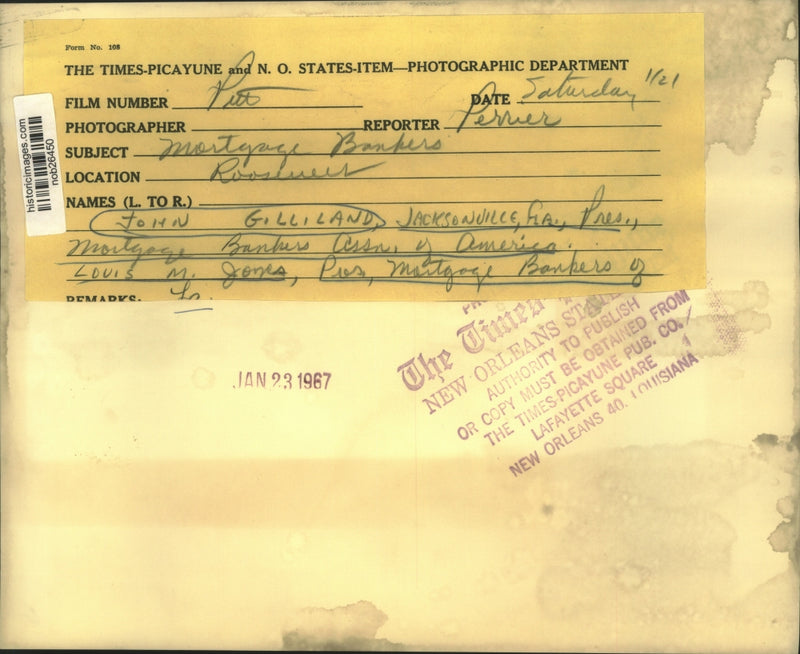 Form No. 108
THE TIMES-PICAYUNE and N. O. STATES-ITEM—PHOTOGRAPHIC DEPARTMENT
FILM NUMBER Pitt DATE Saturday 1/21
PHOTOGRAPHER REPORTER Perrier
SUBJECT Mortgage Bankers
LOCATION Roosevelt
NAMES (L. TO R.)
JOHN GILLILAND, JACKSONVILLE, Fla., Pres.,
Mortgage Bankers Assn. of America.
LOUIS M. Jones, Pres, Mortgage Bankers of
REMARKS: La.
historicimages.com
nob26450
JAN 23 1967
The Times
NEW ORLEANS STATES
AUTHORITY TO PUBLISH
OR COPY MUST BE OBTAINED FROM
THE TIMES-PICAYUNE PUB. CO.
LAFAYETTE SQUARE
NEW ORLEANS 40, LOUISIANA